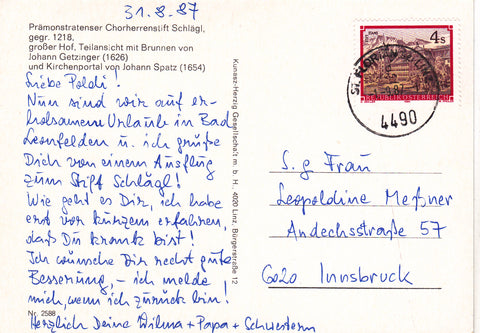 31.8.87
Prämonstratenser Chorherrenstift Schlägl,
gegr. 1218,
großer Hof, Teilansicht mit Brunnen von
Johann Getzinger (1626)
und Kirchenportal von Johann Spatz (1654)
Liebe Poldi!
Nun sind wir auf er-
holsamem Urlaub in Bad
Leonfelden u. ich grüße
Dich von einem Ausflug
zum Stift Schlägl!
Wie geht es Dir, ich habe
erst vor kurzem erfahren,
daß Du krank bist!
Ich wünsche Dir recht gute
Besserung, - ich melde
mich, wenn ich zurück bin!
Herzlich Deine Wilma + Papa + Schwestern
Nr. 2588
Kunasz-Herzig Gesellschaft m. b. H., 4020 Linz, Bürgerstraße 12
4 s
REPUBLIK ÖSTERREICH
4490
S. g Frau
Leopoldine Meßner
Andechsstraße 57
6020 Innsbruck